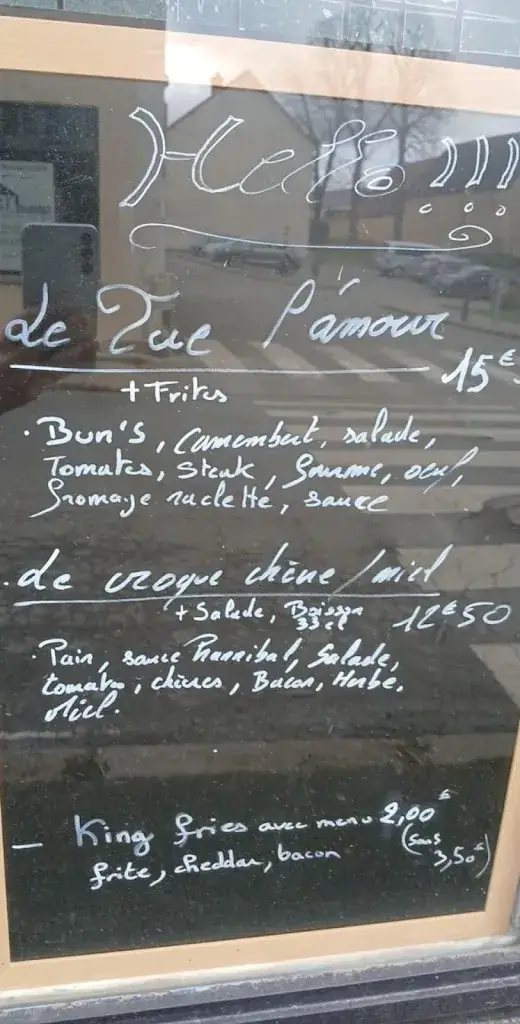 Hello !!!
Le Tue l'amour
15€
+ Frites
· Bun's, camembert, salade,
Tomates, Steak, Gourme, oeuf,
fromage raclette, sauce
· Le croque chèvre/miel
+ Salade, Boisson 33cl 12€50
· Pain, sauce Hannibal, Salade,
tomates, chèvres, Bacon, Herbe,
Miel.
— King fries avec menu 2,00€
frite, cheddar, bacon (sans 3,50€)